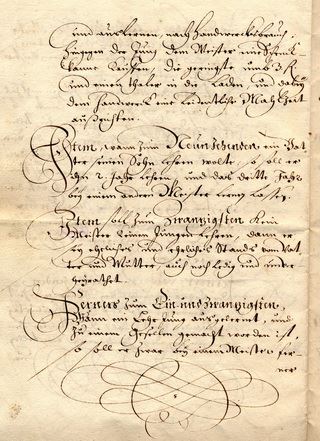 und auslernen, nach Handwercksbrauch,
hingegen der Jung dem Meister ein
kanne kauffen, die geringste umb 3 fl.
und einen thaler in die Laden, und dabey
dem Handwerck eine leidentliche Mahlzeit
ausrichten.
Item, wann zum Neunzehenden ein Vat-
ter seinen Sohn lehren wolte, so soll er
ihn 2 Jahr lehren, und das dritte Jahr
bey einem andern Meister lernen lassen.
Item soll zum Zwanzigsten kein
Meister keinen Jungen lehren, dann er
sey ehrliches und ehelichs Stands von Vat-
ter und Mutter, auch noch ledig und unver-
heyrathet.
Ferners zum Ein und zwanzigsten,
Wann ein Lehrjung ausgelernet, und
zu einem Gesellen gemacht worden ist,
so soll er zwar bey einem Meister fer-
ner